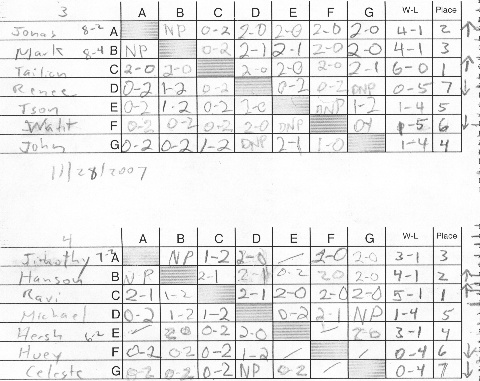 3 A B C D E F G W-L Place
Jonas 8-2 A NP 0-2 2-0 2-0 2-0 2-0 4-1 2
Mark 8-4 B NP 0-2 2-1 2-1 2-0 2-0 4-1 3
C 2-0 2-0 2-0 2-0 2-0 2-1 6-0 1
Renee D 0-2 1-2 0-2 0-2 0-2 DNP 0-5 7
Tson E 0-2 1-2 0-2 2-0 DNP 1-2 1-4 5
F 0-2 0-2 0-2 2-0 DNP 1-5 6
John G 0-2 0-2 1-2 DNP 2-1 1-0 1-4 4
11/28/2007
4 A B C D E F G W-L Place
Timothy A NP 1-2 2-0 / 2-0 2-0 3-1 3
Hanson B NP 2-1 2-1 0-2 2-0 2-0 4-1 2
Ravi C 2-1 1-2 2-1 2-0 2-0 2-0 5-1 1
Michael D 0-2 1-2 1-2 0-2 2-1 NP 1-4 5
Hersh 6-2 E / 2-0 0-2 2-0 / 2-0 3-1 4
Huey F 0-2 0-2 0-2 1-2 / / 0-4 6
Celeste G 0-2 0-2 0-2 NP 0-2 / 0-4 7